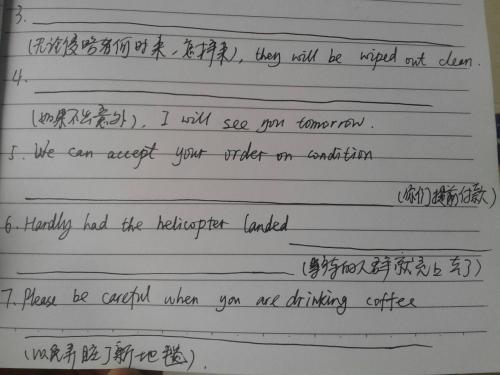 3.
(无论侵略者何时来,怎样来), they will be wiped out clean.
4.
(如果不出意外), I will see you tomorrow.
5. We can accept your order on condition
(你们提前付款)
6. Hardly had the helicopter landed
(等待的人群就壳上去了)
7. Please be careful when you are drinking coffee
(以免弄脏了新地毯).